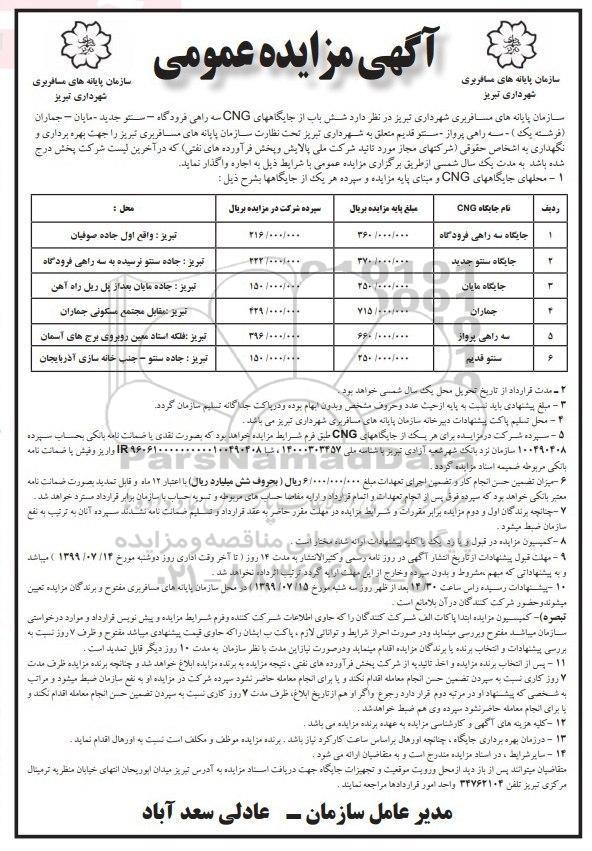 آگهی مزایده عمومی
سازمان پایانه های مسافربری
شهرداری تبریز
سازمان پایانه های مسافربری
شهرداری تبریز
سازمان پایانه های مسافربری شهرداری تبریز در نظر دارد شش باب از جایگاههای CNG سه راهی فرودگاه – سنتو جدید -مایان – جماران
(فرشته یک) - سه راهی پرواز - سنتو قدیم متعلق به شهرداری تبریز تحت نظارت سازمان پایانه های مسافربری تبریز را جهت بهره برداری و
نگهداری به اشخاص حقوقی (شرکتهای مجاز مورد تائید شرکت ملی پالایش وپخش فرآورده های نفتی) که درآخرین لیست شرکت پخش درج
شده باشد به مدت یک سال شمسی ازطریق برگزاری مزایده عمومی با شرایط ذیل به اجاره واگذار نماید.
۱ - محلهای جایگاههای CNG و مبنای پایه مزایده و سپرده هر یک از جایگاهها بشرح ذیل :
ردیف نام جایگاه CNG مبلغ پایه مزایده بریال سپرده شرکت در مزایده بریال محل :
۱ جایگاه سه راهی فرودگاه ۳۶۰/۰۰۰/۰۰۰ ۲۱۶/۰۰۰/۰۰۰ تبریز : واقع اول جاده صوفیان
۲ جایگاه سنتو جدید ۳۷۰/۰۰۰/۰۰۰ ۲۲۲/۰۰۰/۰۰۰ تبریز : جاده سنتو نرسیده به سه راهی فرودگاه
۳ جایگاه مایان ۲۵۰/۰۰۰/۰۰۰ ۱۵۰/۰۰۰/۰۰۰ تبریز : جاده مایان بعداز پل ریل راه آهن
۴ جماران ۷۱۵/۰۰۰/۰۰۰ ۴۲۹/۰۰۰/۰۰۰ تبریز :مقابل مجتمع مسکونی جماران
۵ سه راهی پرواز ۶۶۰/۰۰۰/۰۰۰ ۳۹۶/۰۰۰/۰۰۰ تبریز :فلکه استاد معین روبروی برج های آسمان
۶ سنتو قدیم ۲۵۰/۰۰۰/۰۰۰ ۱۵۰/۰۰۰/۰۰۰ تبریز : جاده سنتو – جنب خانه سازی آذربایجان
۲ - مدت قرارداد از تاریخ تحویل محل یک سال شمسی خواهد بود .
۳ - مبلغ پیشنهادی باید نسبت به پایه ازحیث عدد وحروف مشخص وبدون ابهام بوده ودرپاکت جداگانه تسلیم سازمان گردد.
۴ - محل تسلیم پاکت پیشنهادات دبیرخانه سازمان پایانه های مسافربری شهرداری تبریز می باشد .
۵ - سپرده شرکت درمزایده برای هر یک از جایگاههای CNG طبق فرم شرایط مزایده خواهد بود که بصورت نقدی یا ضمانت نامه بانکی بحساب سپرده
۱۰۰۴۹۰۴۰۸ سازمان نزد بانک شهر شعبه آزادی تبریز با شناسه ملی ۱۴۰۰۰۳۰۳۴۵۷ ، شبا IR ۹۶۰۶۱۰۰۰۰۰۰۰۰۰۰۱۰۰۴۹۰۴۰۸ واریز وفیش یا ضمانت نامه
بانکی مربوطه ضمیمه اسناد مزایده گردد .
۶ -میزان تضمین حسن انجام کار و تضمین اجرای تعهدات مبلغ ۶/۰۰۰/۰۰۰/۰۰۰ ریال ( بحروف شش میلیارد ریال) با اعتبار ۱۲ ماه و قابل تمدید بصورت ضمانت نامه
معتبر بانکی خواهد بود که سپرده فوق پس از انجام تعهدات و اتمام قرارداد و ارایه مفاصا حساب های مربوطه و تسویه حساب با سازمان برابر قرارداد مسترد خواهد شد .
۷ -چنانچه برندگان اول و دوم مزایده برابر مقررات و شرایط مزایده در مهلت مقرر حاضر به عقد قرارداد و تسلیم ضمانت نامه نشدند سپرده آنان به ترتیب به نفع
سازمان ضبط میشود .
۸ -کمیسیون مزایده در قبول و یا رد یک یا کلیه پیشنهادات ارائه شده مختار است .
۹ - مهلت قبول پیشنهادات ازتاریخ انتشار آگهی در روز نامه رسمی و کثیرالانتشار به مدت ۱۴ روز ( تا آخر وقت اداری روز دوشنبه مورخ ۱۴/ ۰۷/ ۱۳۹۹ ) میباشد
و به پیشنهاداتی که مبهم ،مشروط و بدون سپرده وخارج از این مهلت ارایه گردد ترتیب اثرداده نخواهد شد .
۱۰ -پیشنهادات رسیده راس ساعت ۱۴/۳۰ بعد از ظهر روز سه شنبه مورخ (۱۵/ ۰۷/ ۱۳۹۹ ) در محل سازمان پایانه های مسافربری مفتوح و برندگان مزایده تعیین
میشوندوحضور شرکت کنندگان درآن بلامانع است .
تبصره)- کمیسیون مزایده ابتدا پاکات الف شرکت کنندگان را که حاوی اطلاعات شرکت کننده وفرم شرایط مزایده و پیش نویس قرارداد و موارد درخواستی
سازمان میباشد مفتوح وبررسی مینماید ودر صورت احراز شرایط و توانائی لازم ، پاکت ب ایشان راکه حاوی قیمت پیشنهادی میباشد مفتوح و ظرف ۷ روز نسبت به
بررسی پیشنهادات و انتخاب برنده یا برندگان مزایده اقدام مینماید ودرصورت نیازاین مدت با نظر سازمان به مدت ۱۰ روز دیگر قابل تمدید است .
۱۱ - پس از انتخاب برنده مزایده و اخذ تائیدیه از شرکت پخش فرآورده های نفتی ، نتیجه مزایده به برنده مزایده ابلاغ خواهد شد و چنانچه برنده مزایده ظرف مدت
۷ روز کاری نسبت به سپردن تضمین حسن انجام معامله اقدام نکند و یا برای انجام معامله حاضر نشود سپرده شرکت در مزایده او به نفع سازمان ضبط میشود و مراتب
به شخصی که پیشنهاد او در مرتبه دوم قرار دارد رجوع واگر او هم ازتاریخ ابلاغ، ظرف مدت ۷ روز کاری نسبت به سپردن تضمین حسن انجام معامله اقدام نکند و
یا برای انجام معامله حاضرنشود سپرده وی هم ضبط خواهدشد.
۱۲ -کلیه هزینه های آگهی و کارشناسی مزایده به عهده برنده مزایده می باشد .
۱۳ - درزمان بهره برداری جایگاه ، چنانچه اورهال براساس ساعت کارکرد نیاز باشد . برنده مزایده موظف و مکلف است نسبت به اورهال اقدام نماید .
۱۴ - سایرشرایط ، در اسناد مزایده مندرج است و به متقاضیان ارائه می شود .
متقاضیان میتوانند پس از باز دید ازمحل ورویت موقعیت و تجهیزات جایگاه جهت دریافت اسناد مزایده به آدرس تبریز میدان ابوریحان انتهای خیابان منظریه ترمینال
مرکزی تبریز تلفن ۳۴۷۶۲۱۰۴ واحد امور قراردادها مراجعه نمایند .
مدیر عامل سازمان – عادلی سعد آباد
ParsNamadData